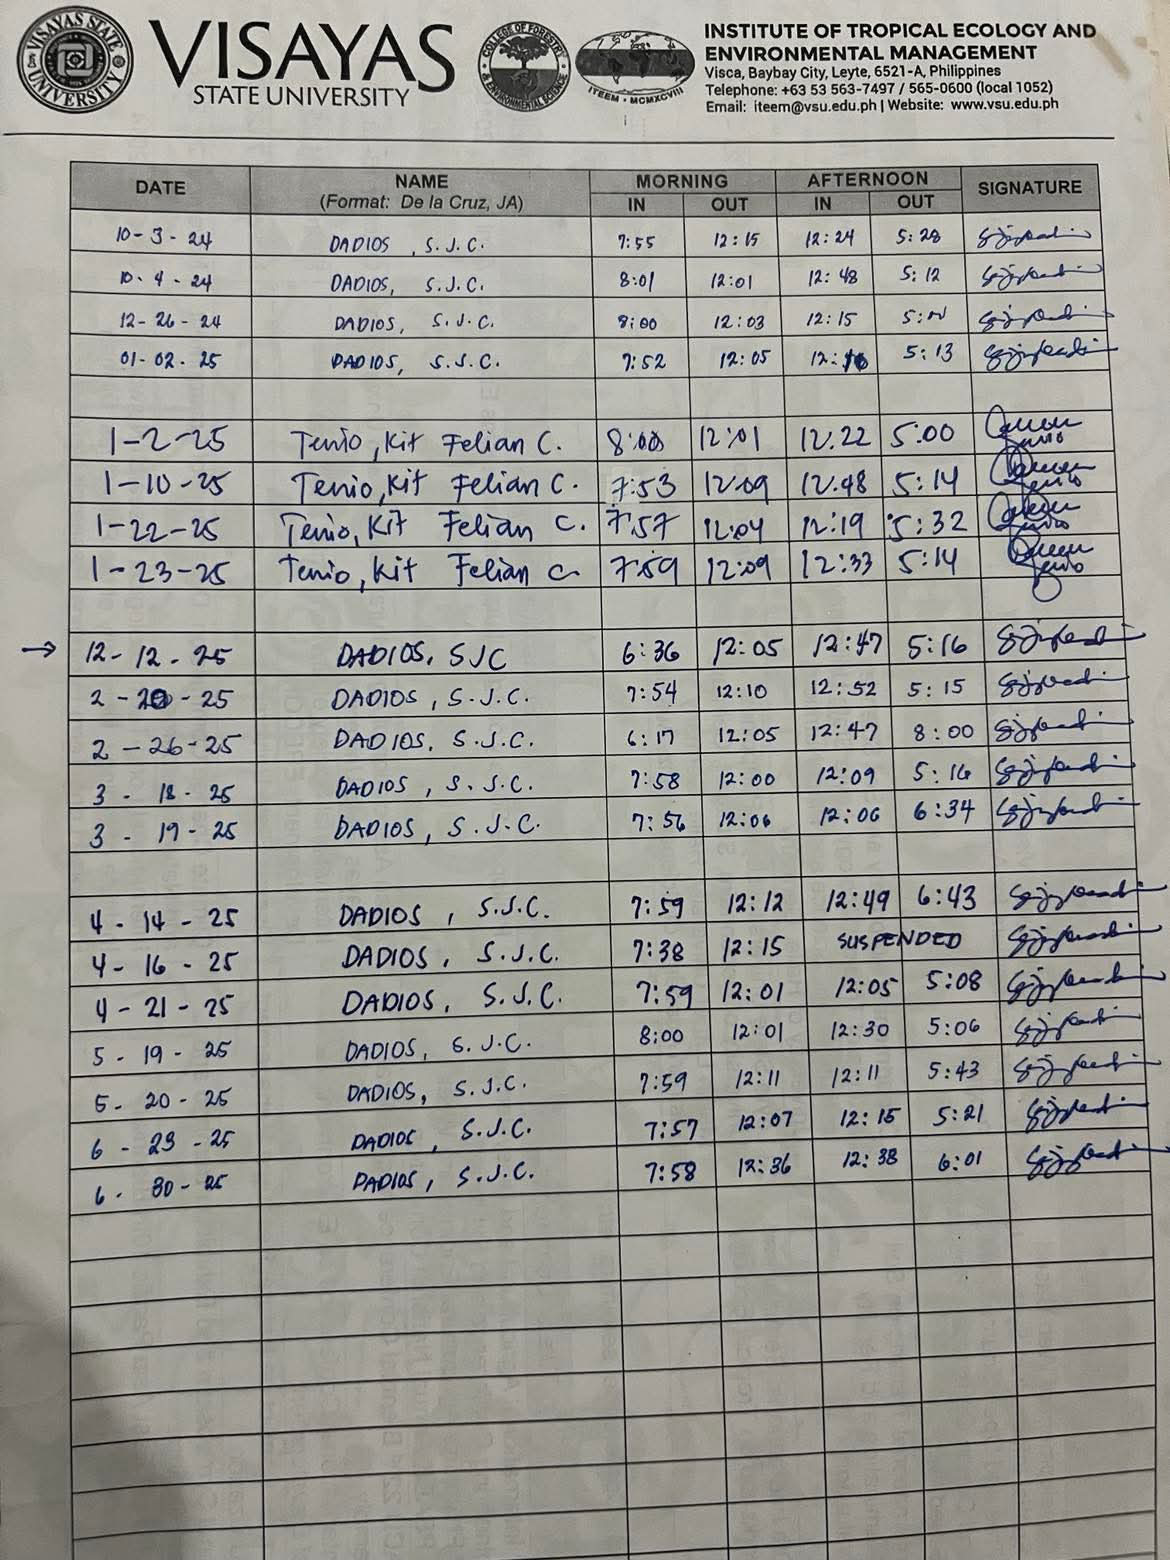 VISAYAS
STATE UNIVERSITY
VISAYAS STATE UNIVERSITY
COLLEGE OF FORESTRY & ENVIRONMENTAL SCIENCE
ITEEM • MCMXCVIII
INSTITUTE OF TROPICAL ECOLOGY AND
ENVIRONMENTAL MANAGEMENT
Visca, Baybay City, Leyte, 6521-A, Philippines
Telephone: +63 53 563-7497 / 565-0600 (local 1052)
Email: iteem@vsu.edu.ph | Website: www.vsu.edu.ph
DATE NAME MORNING AFTERNOON SIGNATURE
(Format: De la Cruz, JA) IN OUT IN OUT
10-3-24 DADIOS, S.J.C. 7:55 12:15 12:24 5:28
10-4-24 DADIOS, S.J.C. 8:01 12:01 12:48 5:12
12-26-24 DADIOS, S.J.C. 8:00 12:03 12:15
01-02-25 DADIOS, S.J.C. 7:52 12:05 5:13
1-2-25 Tenio, Kit Felian C. 8:00 12:01 12:22 5:00
1-10-25 Tenio, Kit Felian C. 7:53 12:09 12:48 5:14
1-22-25 Tenio, Kit Felian C. 7:57 12:04 12:19 5:32
1-23-25 Tenio, Kit Felian C. 7:59 12:09 12:33 5:14
→ 12-12-25 DADIOS, SJC 6:36 12:05 12:47 5:16
2-20-25 DADIOS, S.J.C. 7:54 12:10 12:52 5:15
2-26-25 DADIOS, S.J.C. 6:17 12:05 12:47 8:00
3-18-25 DADIOS, S.J.C. 7:58 12:00 12:09 5:16
3-19-25 DADIOS, S.J.C. 7:56 12:06 12:06 6:34
4-14-25 DADIOS, S.J.C. 7:59 12:12 12:49 6:43
4-16-25 DADIOS, S.J.C. 7:38 12:15 SUSPENDED
4-21-25 DADIOS, S.J.C. 7:59 12:01 12:05 5:08
5-19-25 DADIOS, S.J.C. 8:00 12:01 12:30 5:06
5-20-25 DADIOS, S.J.C. 7:59 12:11 12:11 5:43
6-23-25 DADIOS, S.J.C. 7:57 12:07 12:15 5:21
6-30-25 DADIOS, S.J.C. 7:58 12:36 12:38 6:01